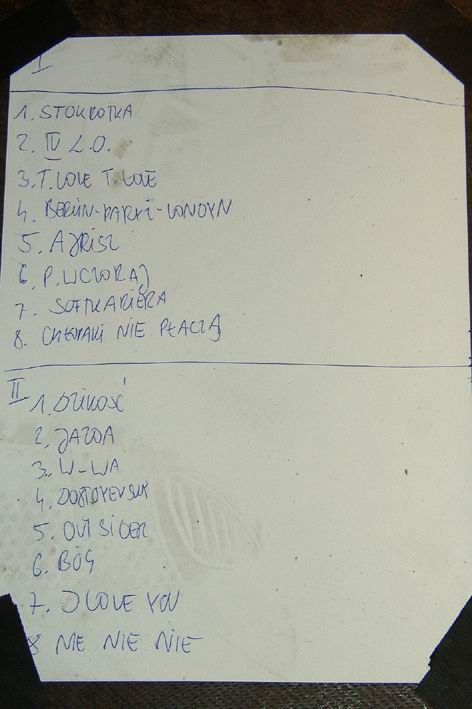 I
1. STOKROTKA
2. IV L.O.
3. T.LOVE T.LOVE
4. BERLIN-PARYŻ-LONDYN
5. AJRISZ
6. P. WCZORAJ
7. SOFTKARIERA
8. CHŁOPAKI NIE PŁACZĄ
II
1. DZIKOŚĆ
2. JAZDA
3. W-WA
4. DOSTOYEVSKY
5. OUTSIDER
6. BÓG
7. I LOVE YOU
8 NIE NIE NIE